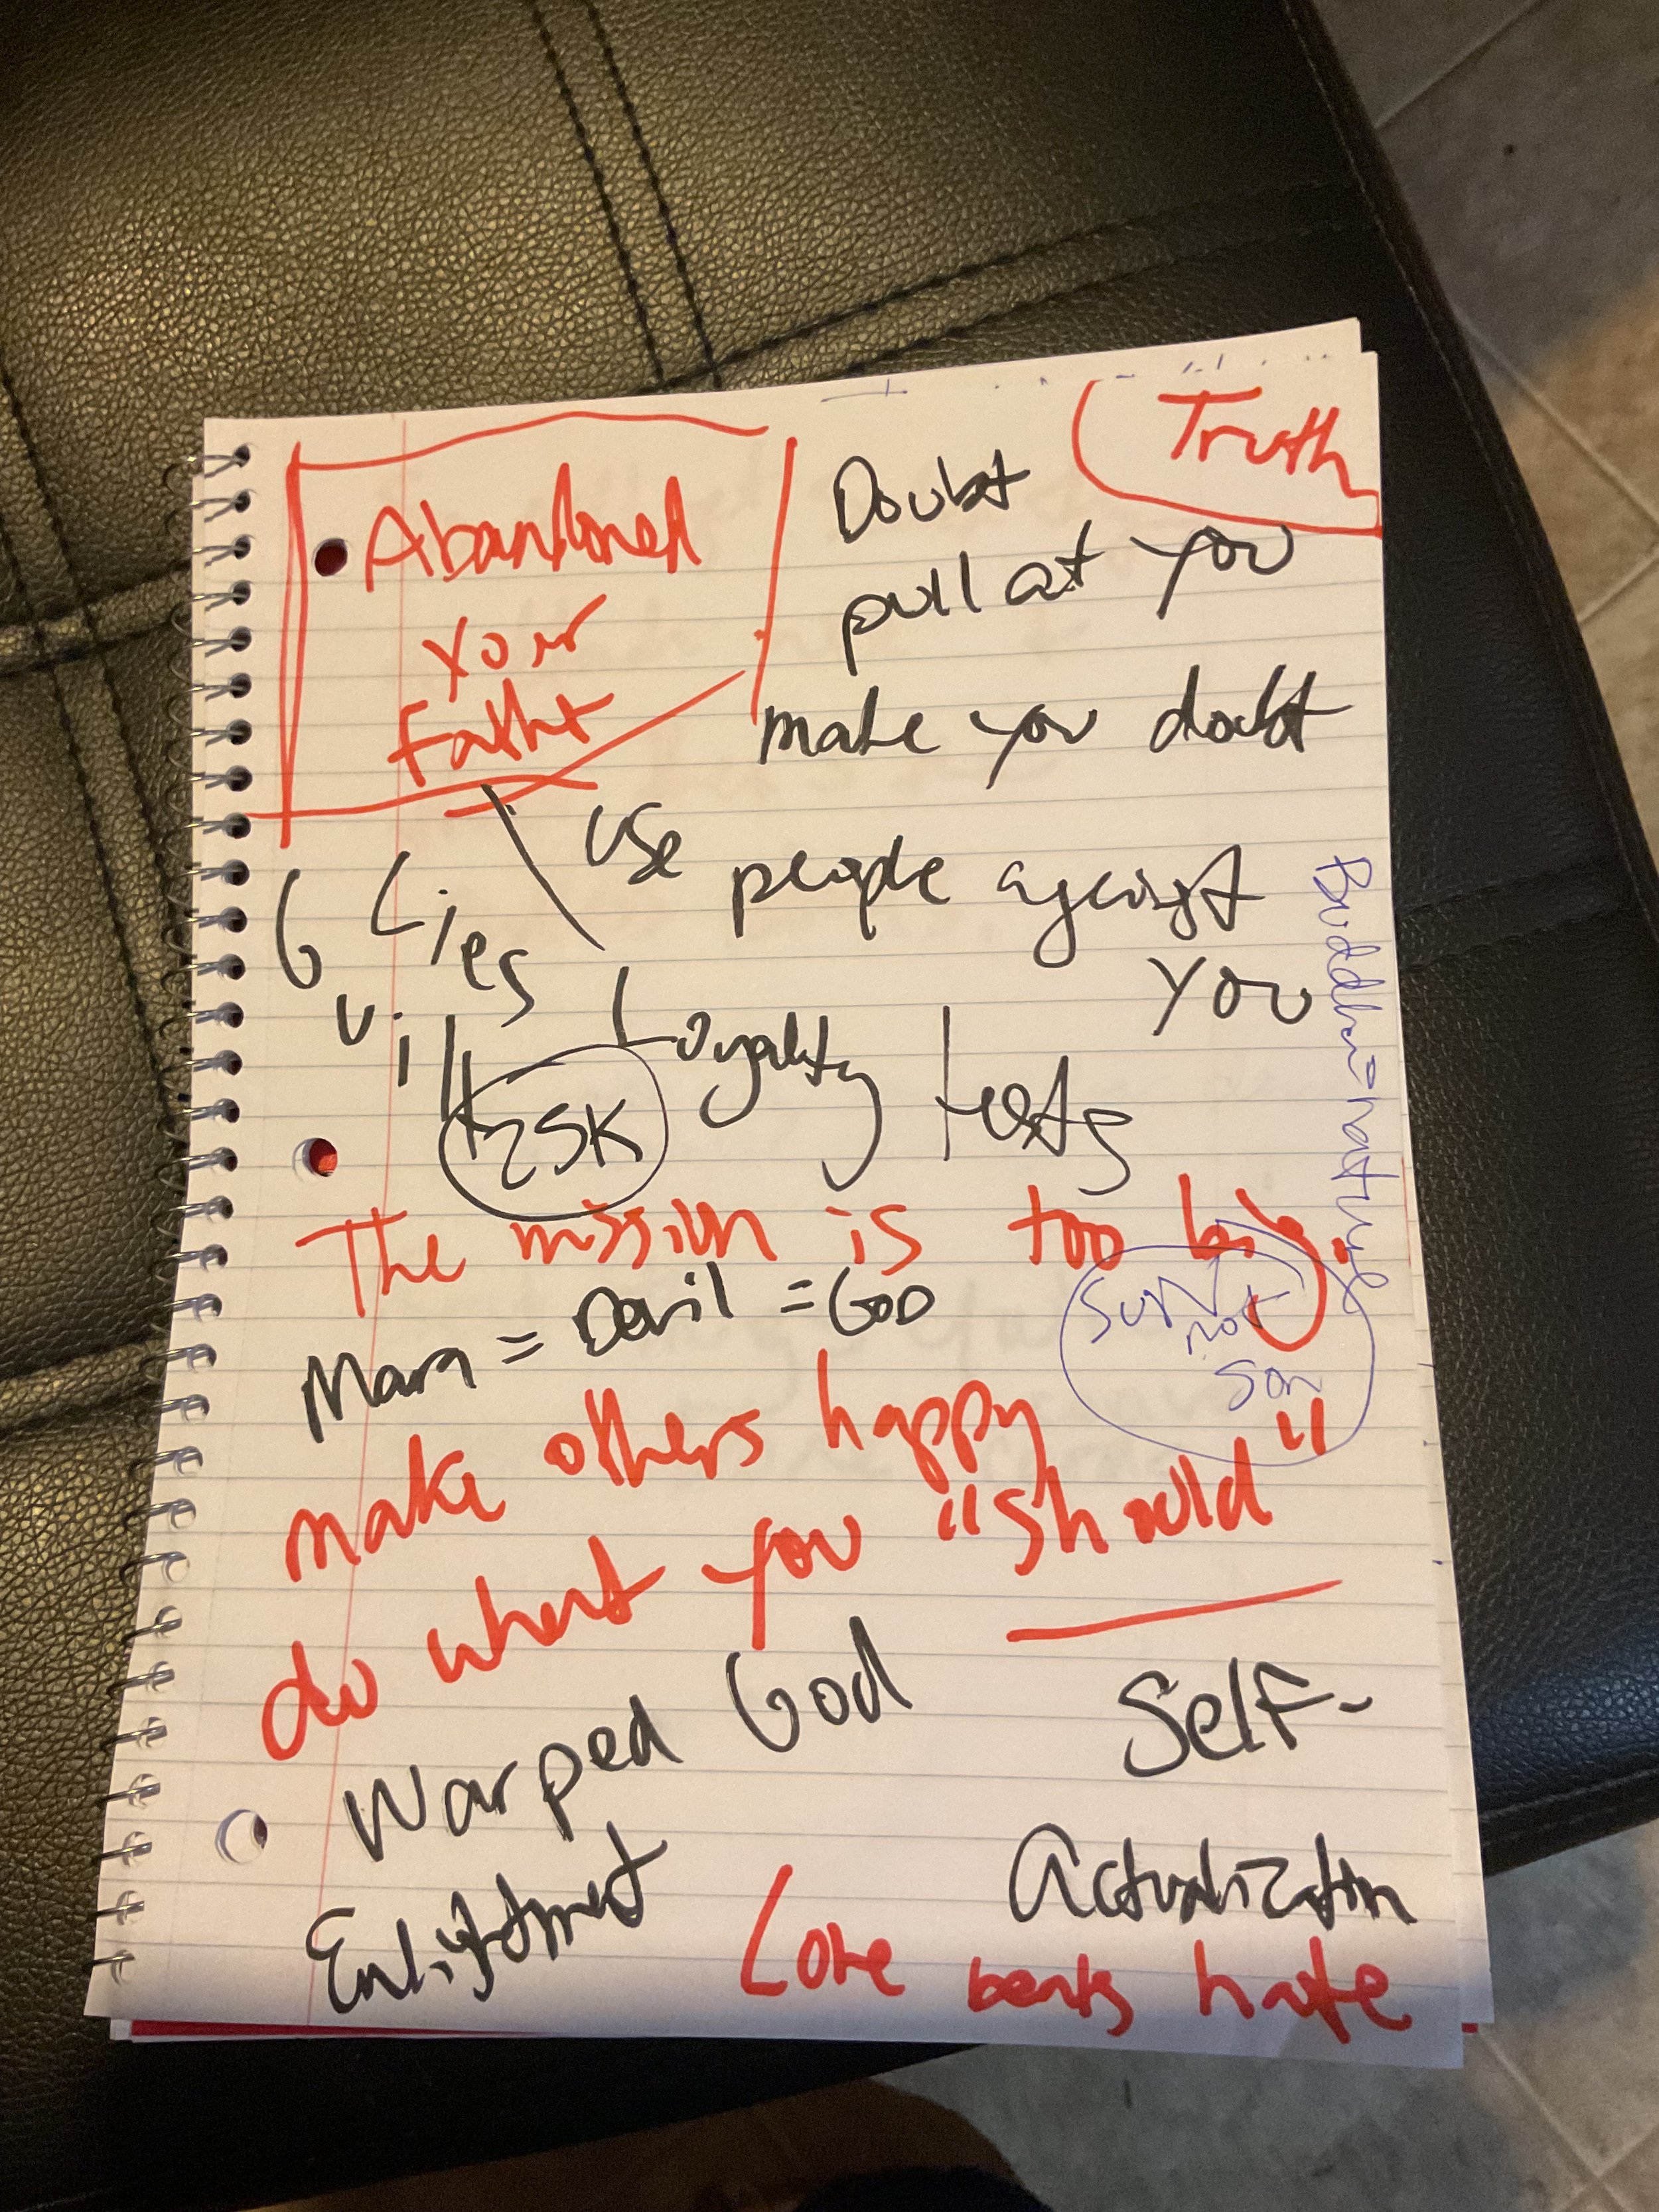 Truth
Abandoned
Your
Faiht
Doubt
pull at you
make you doubt
Use people against
you
Lies
Guilt
25K
Loyalty tests
Buddha-nature
The mission is too big.
Sun
not
Son
Mara = Devil = God
make others happy
do what you "should"
Warped God
Self-
Actualization
Love beats hate